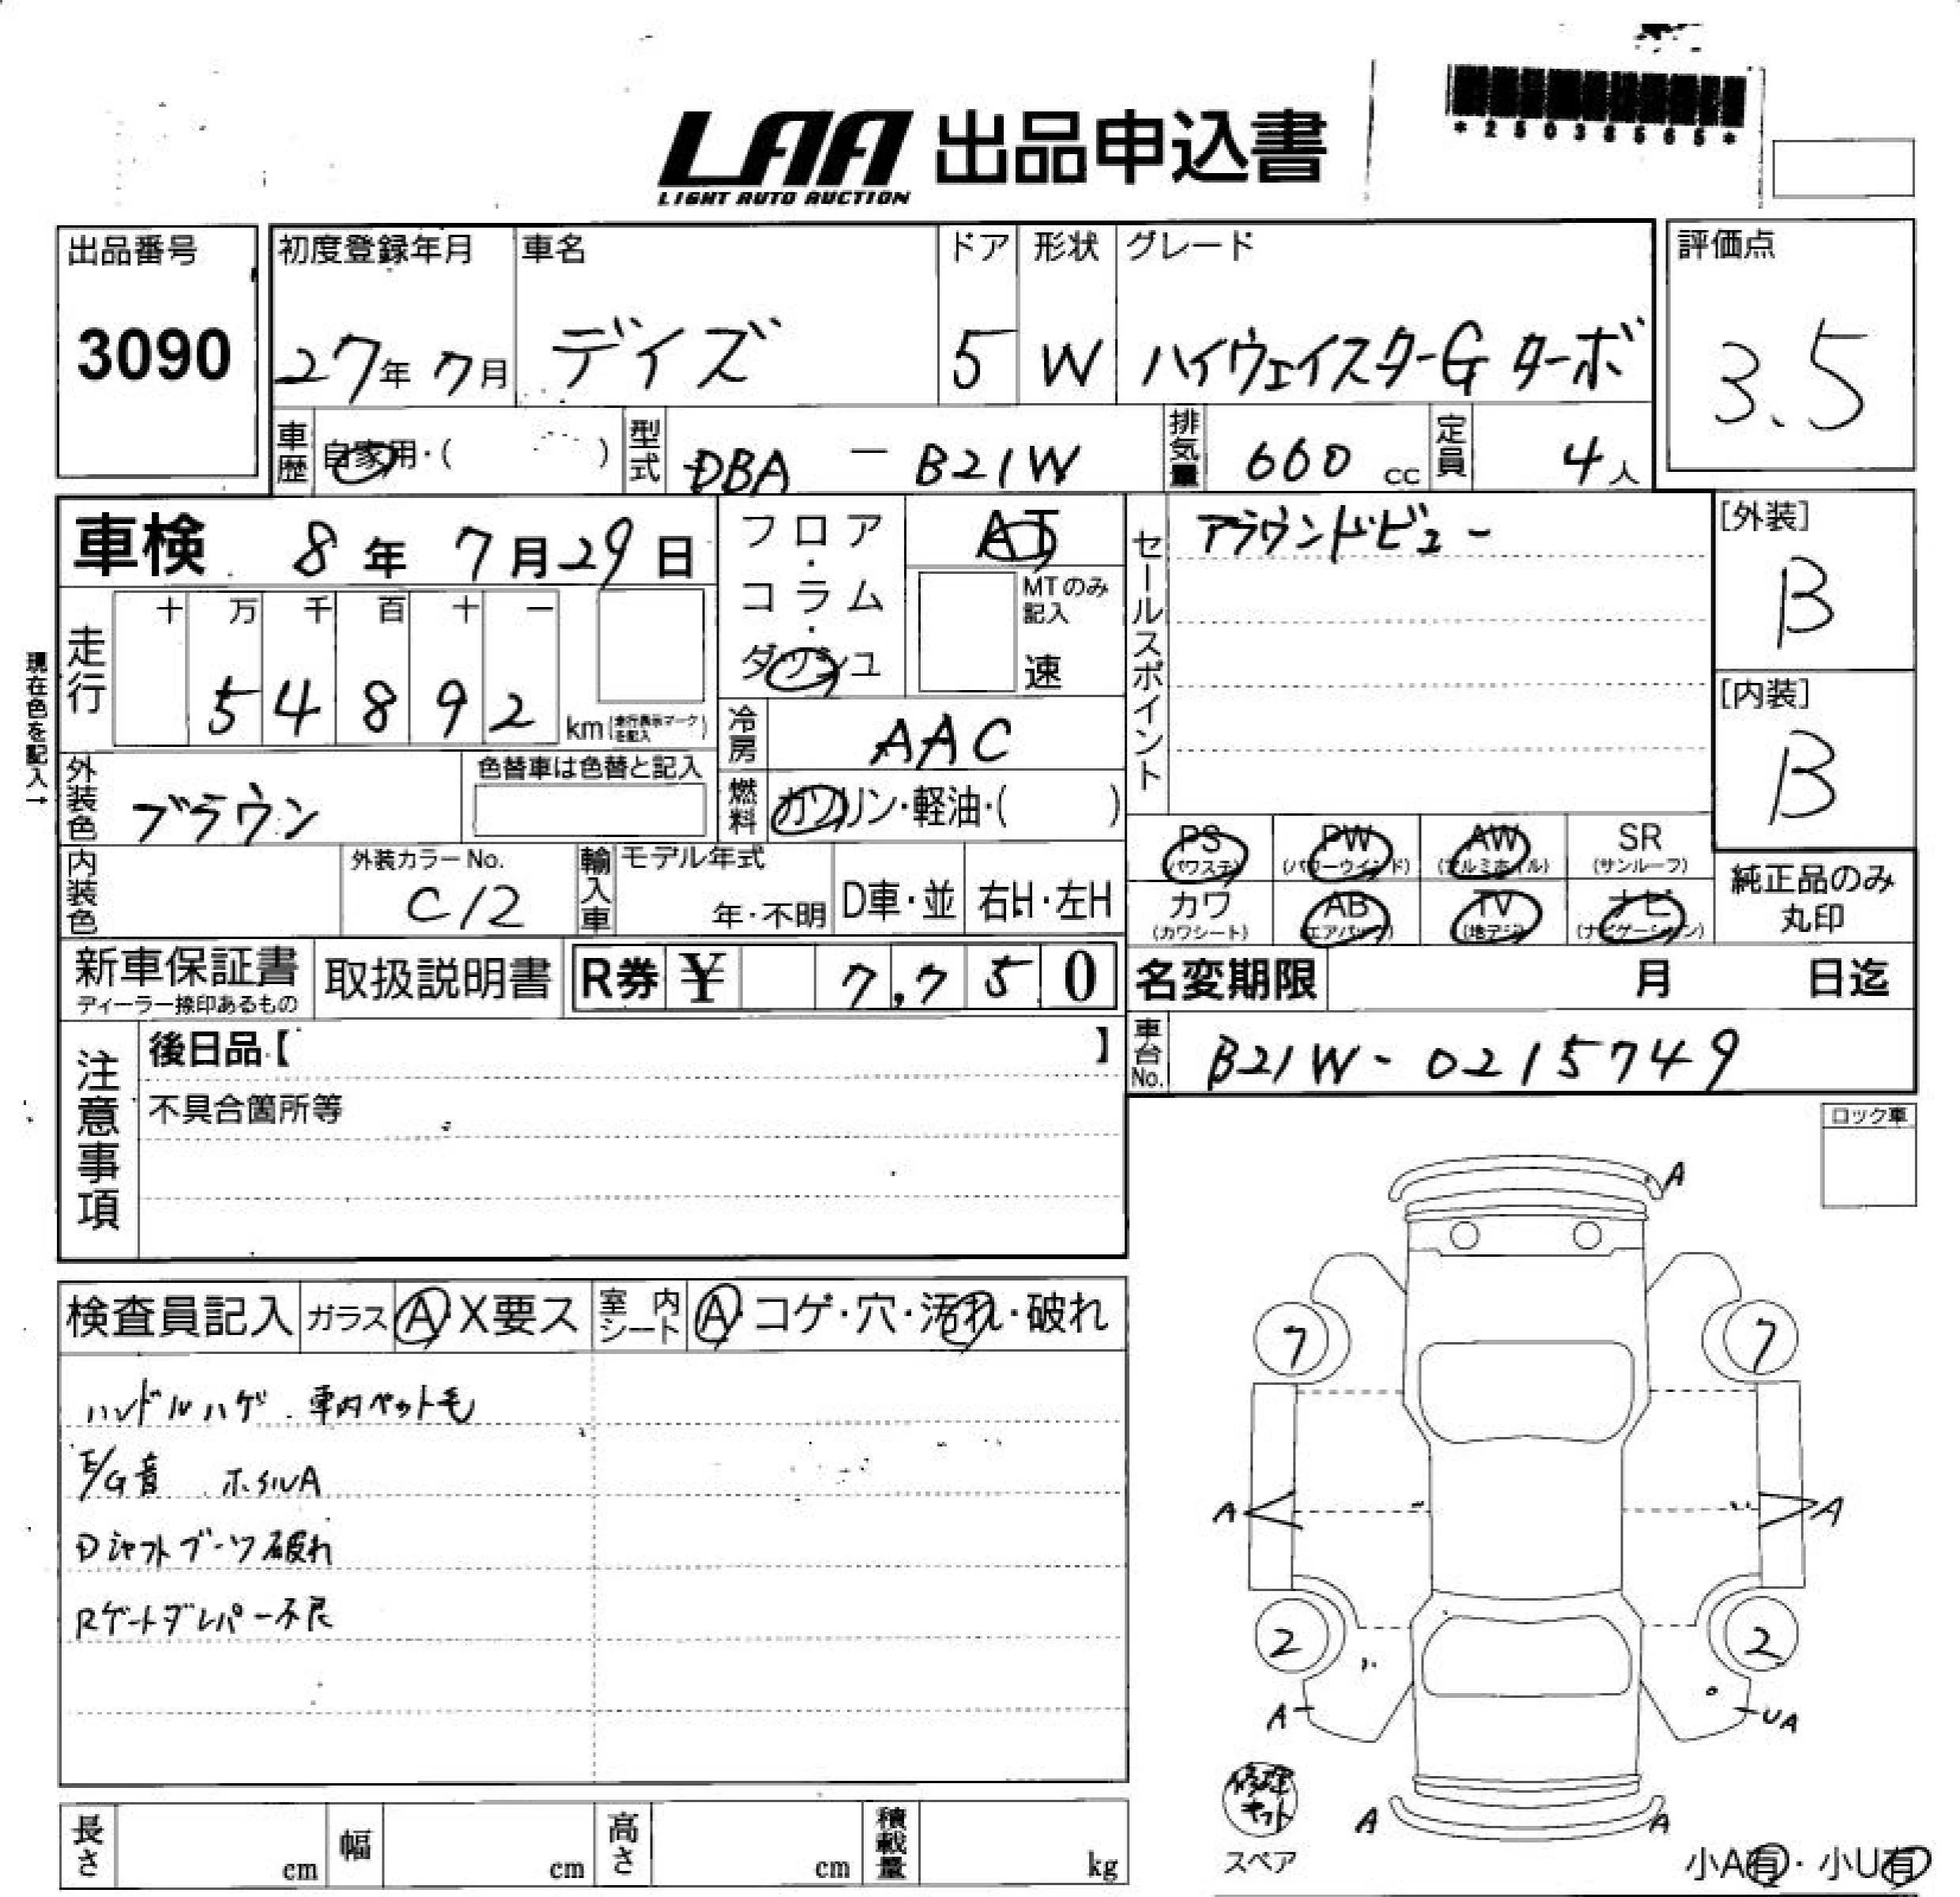 *25038565*
LAA 出品申込書
LIGHT AUTO AUCTION
出品番号 3090
初度登録年月 27年7月
車名 デイズ
ドア 5
形状 W
グレード ハイウェイスターG ターボ
評価点 3.5
車歴 自家用・( )
型式 DBA - B21W
排気量 660 cc
定員 4人
車検 8年7月29日
フロア・コラム・ダッシュ
AT
MTのみ記入 速
セールスポイント アラウンドビュー
[外装] B
[内装] B
現在色を記入→
走行 十 万 千 百 十 一
5 4 8 9 2 km(走行表示マークを記入)
冷房 AAC
燃料 ガソリン・軽油・( )
外装色 ブラウン
色替車は色替と記入
内装色
外装カラーNo. C12
輸入車 モデル年式 年・不明 D車・並 右H・左H
PS (パワステ) PW (パワーウインド) AW (アルミホイル) SR (サンルーフ)
カワ (カワシート) AB (エアバック) TV (地デジ) ナビ (ナビゲーション)
純正品のみ丸印
新車保証書 ディーラー捺印あるもの
取扱説明書
R券 ¥ 7,750
名変期限 月 日迄
車台No. B21W-0215749
注意事項
後日品【 】
不具合箇所等
ロック車
検査員記入 ガラス A・X要ス 室内シート A・コゲ・穴・汚れ・破れ
ハンドルハゲ 車内ペット毛
E/G音 ホイルA
Dシャフトブーツ破れ
Rゲートダンパー不良
A
7 7
A A
2 2
A UA
A A
修理キット
スペア
小A有・小U有
長さ cm 幅 cm 高さ cm 積載量 kg